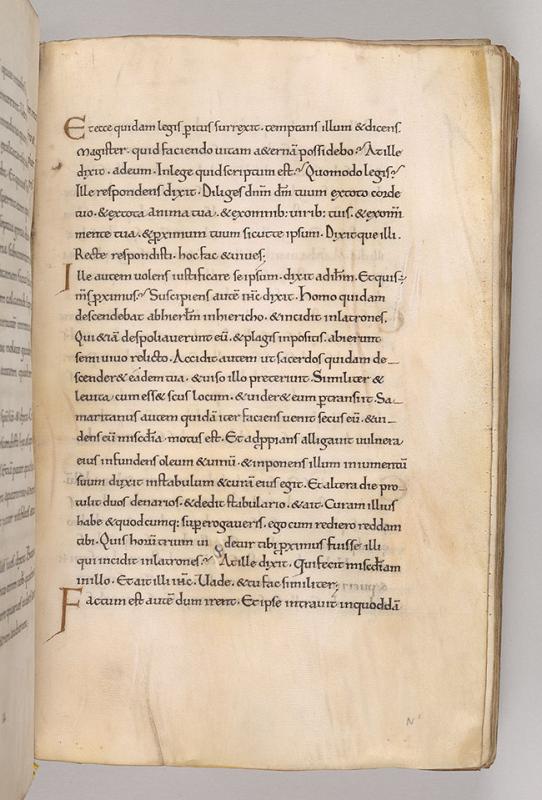 Et ecce quidam legis ꝑitus surrexit· temptans illum & dicens·
Magister· quid faciendo uitam aeternā possidebo? At ille
dixit· ad eum· In lege quid scriptum est? Quomodo legis?
Ille respondens dixit· Diliges dnm dm tuum ex toto corde
tuo· & ex tota anima tua· & ex omnib; uirib; tuis· & ex omni
mente tua· & ꝓximum tuum sicut te ipsum· Dixit que illi·
Recte respondisti· hoc fac & uiues;
Ille autem uolens iustificare se ipsum· dixit ad ihm· Et quis
m̄s proximus? Suscipiens autē ihc dixit· Homo quidam
descendebat ab hierłm in hiericho· & incidit in latrones·
Qui &iā despoliauerunt eū· & plagis inpositis· abierunt
semi uiuo relicto· Accidit autem ut sacerdos quidam de
scender& eadem uia· & uiso illo preteriit· Similiter &
leuita· cum ess& secus locum· & uider& eum ꝑtransiit· Sa
maritanus autem quidā iter faciens uenit secus eū· & ui
dens eū misc̄dia motus est· Et adpropians alligauit uulnera
eius infundens oleum & uinū· & inponens illum in iumentū
suum duxit in stabulum & curā eius egit· Et altera die pro
tulit duos denarios· & dedit stabulario· & ait· Curam illius
habe & quodcumq; superogaueris· ego cum rediero reddam
tibi· Quis horū trium ui detur tibi ꝓximus fuisse illi
qui incidit in latrones? At ille dixit· Qui fecit misc̄diam
in illo· Et ait illi ihc· Uade· & tu fac similiter;
Factum est autē dum irent· Et ipse intrauit in quoddā
N